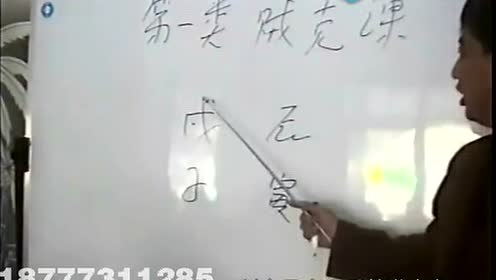 第一类 贼克课
戌 辰
子 寅
18777311285